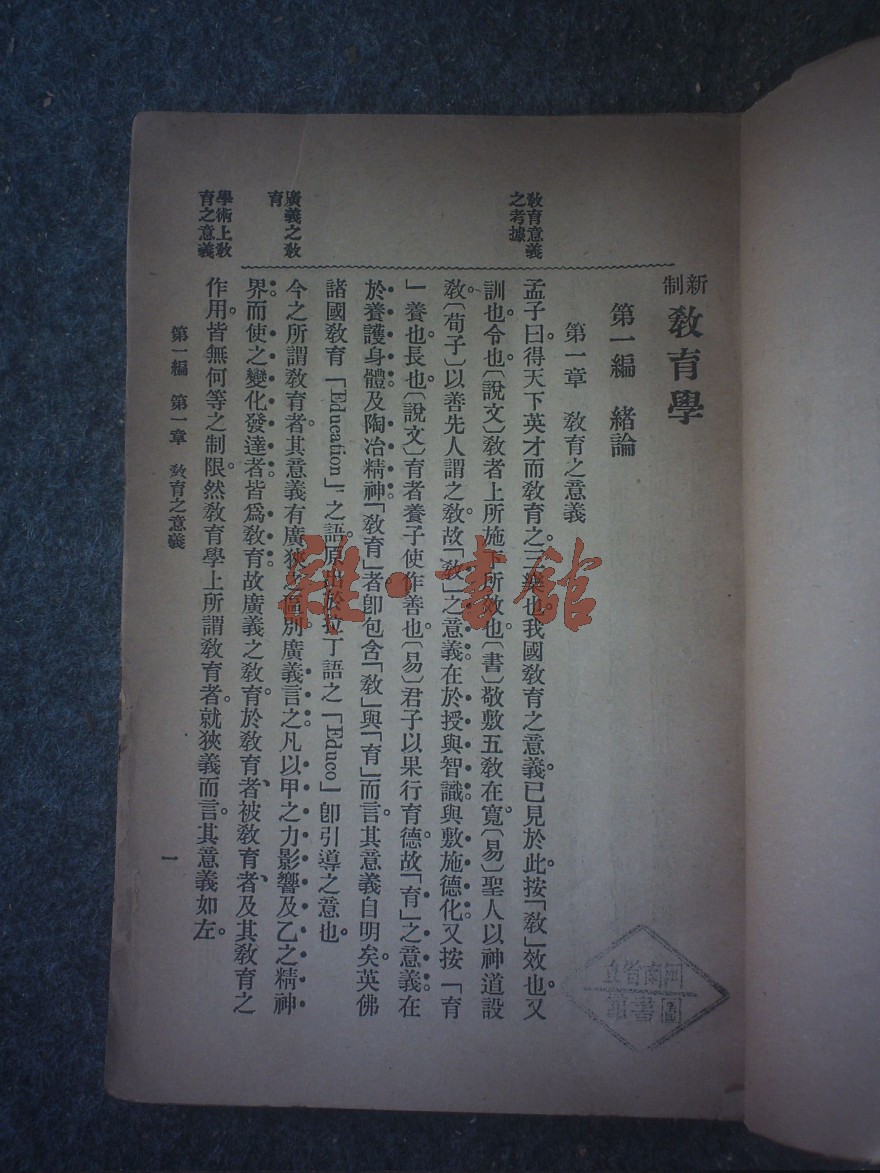 新制 敎育學
第一編 緖論
第一章 敎育之意義
敎育意義
之考據
孟子曰。得天下英才而敎育之。三樂也。我國敎育之意義。已見於此。按「敎」效也。又
訓也。令也。〔說文〕敎者上所施下所效也。〔書〕敬敷五敎在寬。〔易〕聖人以神道設
敎。〔荀子〕以善先人謂之敎。故「敎」之意義在於授與智識與敷施德化。又按「育
」養也。長也。〔說文〕育者養子使作善也。〔易〕君子以果行育德。故「育」之意義在
於養護身體。及陶冶精神。「敎育」者。卽包含「敎」與「育」而言。其意義自明矣。英佛
諸國敎育「Education」之語。原出於拉丁語之「Educo」卽引導之意也。
廣義之敎
育
今之所謂敎育者。其意義有廣狹之區別。廣義言之。凡以甲之力影響及乙之精神
界而使之變化發達者。皆爲敎育。故廣義之敎育。於敎育者、被敎育者、及其敎育之
學術上敎
育之意義
作用。皆無何等之制限。然敎育學上所謂敎育者。就狹義而言。其意義如左。
第一編 第一章 敎育之意義
一
河南省立
圖書館
雜·書館